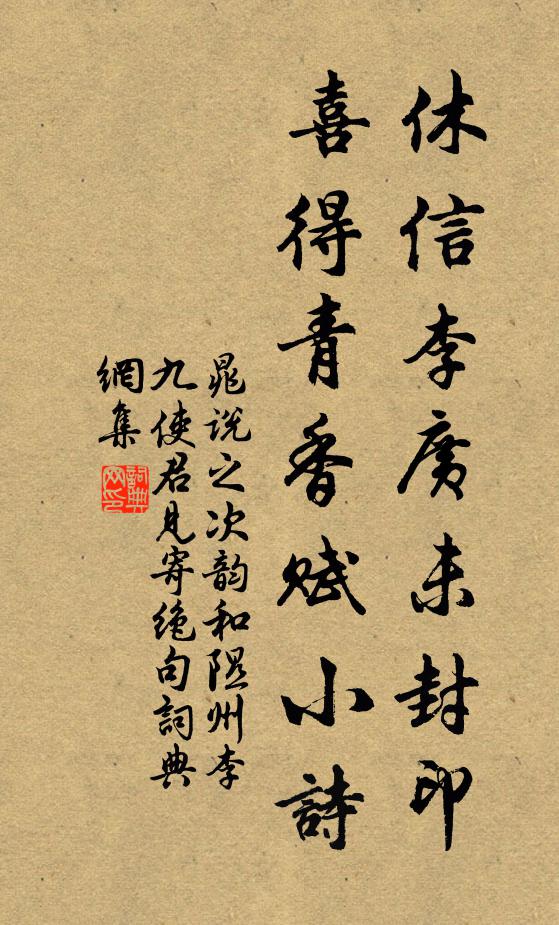 休信李廣未封印
喜得青香賦小詩
晁說之次韵和隰州李
九使君見寄絶句詞典
網集
詞典
网印